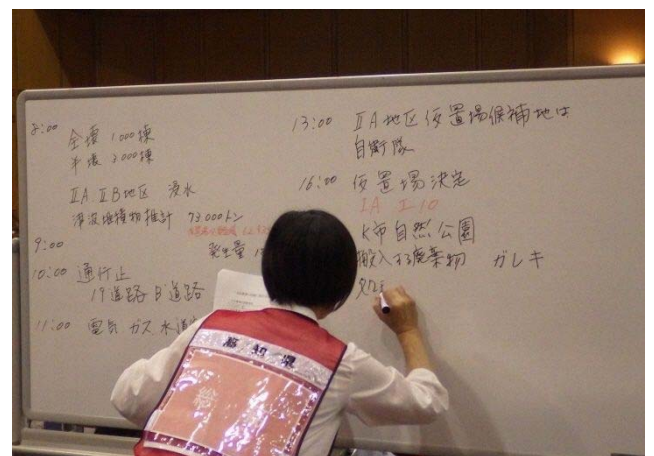 8:00 全壊 1,000棟
半壊 3,000棟
ⅡA, ⅡB地区 浸水
津波堆積物推計 73,000トン
発生量
9:00
10:00 通行止
19道路 B道路
11:00 電気 ガス 水道
13:00 ⅡA地区仮置場候補地は
自衛隊
16:00 仮置場決定
ⅠA Ⅰ-10
K市自然公園
搬入する廃棄物 ガレキ
高知県
総